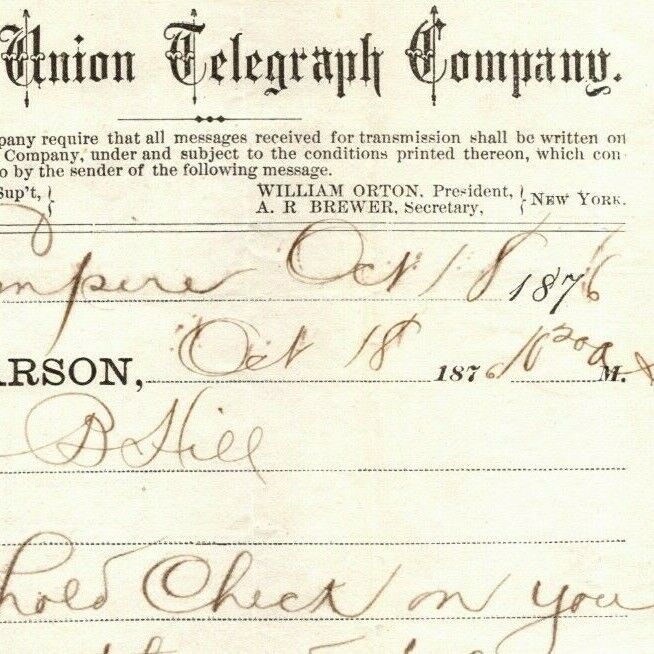 Union Telegraph Company.
pany require that all messages received for transmission shall be written on
Company, under and subject to the conditions printed thereon, which con
o by the sender of the following message.
Sup't, WILLIAM ORTON, President, NEW YORK.
A. R BREWER, Secretary,
mpire Oct 18 1876
ARSON, Oct 18 1876 10 20 a M.
B Hill
hold Check on you